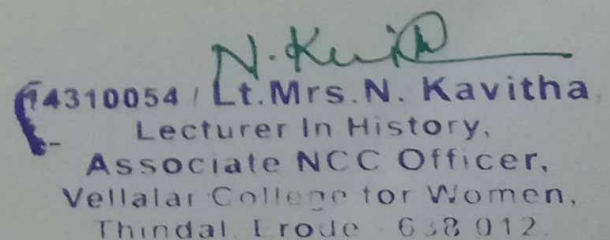 N. Kavith
14310054 / Lt.Mrs.N. Kavitha
Lecturer In History,
Associate NCC Officer,
Vellalar College for Women,
Thindal, Erode - 638 012.